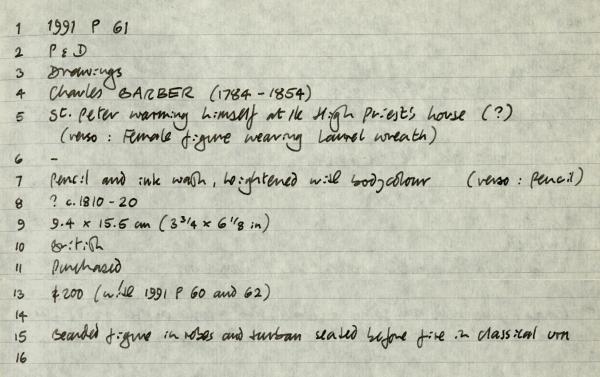 1 1991 P 61
2 P & D
3 Drawings
4 Charles BARBER (1784 - 1854)
5 St. Peter warming himself at the High Priest's house (?)
(verso : Female figure wearing Laurel wreath)
6 -
7 Pencil and ink wash, heightened with bodycolour (verso : Pencil)
8 ? c.1810 - 20
9 9.4 x 15.5 cm (3 3/4 x 6 1/8 in)
10 British
11 Purchased
13 £200 (with 1991 P 60 and 62)
14
15 Bearded figure in robes and turban seated before fire in classical urn
16